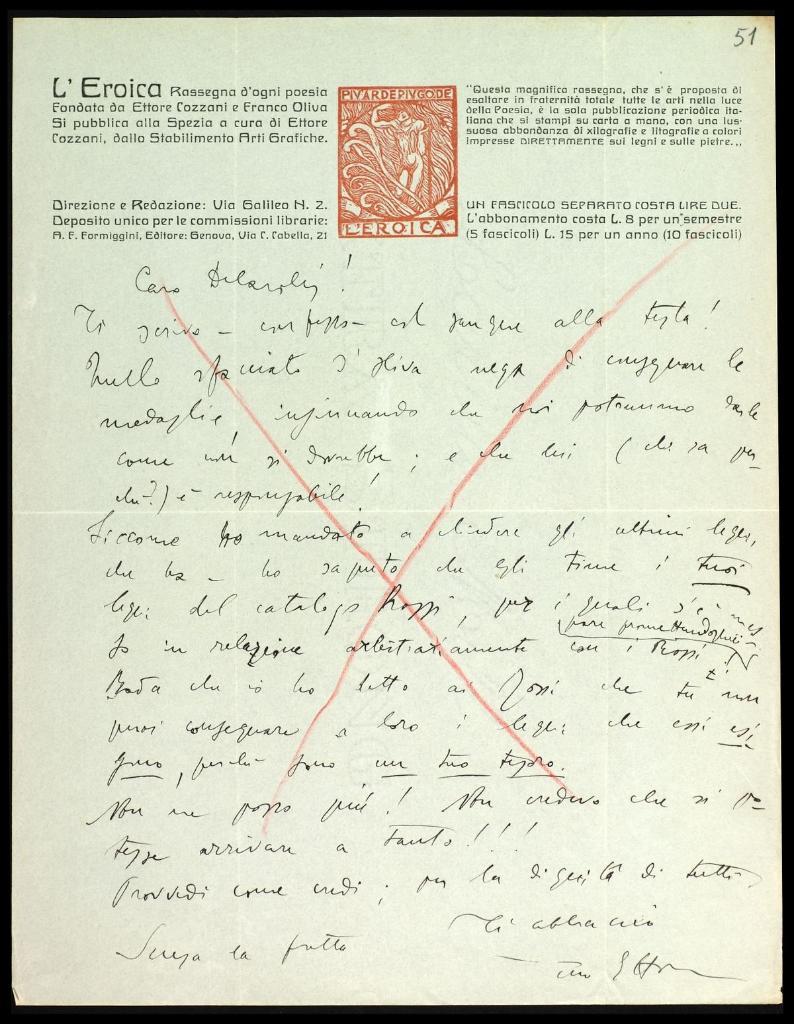 51
L'Eroica Rassegna d'ogni poesia
Fondata da Ettore Cozzani e Franco Oliva
Si pubblica alla Spezia a cura di Ettore
Cozzani, dallo Stabilimento Arti Grafiche.
Direzione e Redazione: Via Galileo N. 2.
Deposito unico per le commissioni librarie:
A. F. Formiggini, Editore: Genova, Via C. Cabella, 21
PIV'ARDEPIVGODE
L'EROICA
"Questa magnifica rassegna, che s'è proposta di
esaltare in fraternità totale tutte le arti nella luce
della Poesia, è la sola pubblicazione periodica ita-
liana che si stampi su carta a mano, con una lus-
suosa abbondanza di xilografie e litografie a colori
impresse DIRETTAMENTE sui legni e sulle pietre.,,
UN FASCICOLO SEPARATO COSTA LIRE DUE.
L'abbonamento costa L. 8 per un semestre
(5 fascicoli) L. 15 per un anno (10 fascicoli)
Caro !
Ti scrivo - confesso - col sangue alla testa!
Quello d'Oliva nega di consegnare le
medaglie, insinuando che noi potremmo darle
come non si dovrebbe; e che lui (chi sa per-
ché?) è responsabile!
Siccome ho mandato a chiedere gli ultimi legni,
che ha - ho saputo che egli tiene i tuoi
legni del catalogo Rossi, per i quali s'è mes
so in relazione arbitrariamente con i Rossi.
Bada che io ho detto ai Rossi che tu non
puoi consegnare a loro i legni che essi esi-
gono, perché sono un tuo tesoro.
Non ne posso più! Non credevo che si po-
tesse arrivare a tanto!!!
Provvedi come credi; per la dignità di tutti.
Ti abbraccio
Scusa la fretta
tuo Ettore